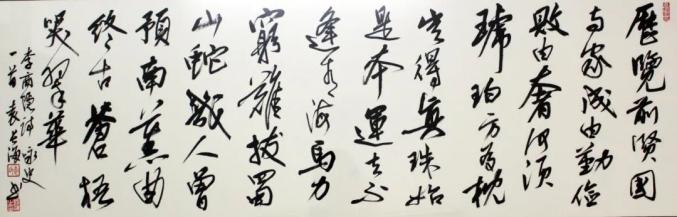 歷覽前賢國
与家成由勤儉
敗由奢何須
琥珀方為枕
豈得真珠始
是車運去不
逢青海馬力
窮難拔蜀
山蛇幾人曾
預南薰曲
終古蒼梧
哭翠華
李商隱詩詠史
一首袁海書